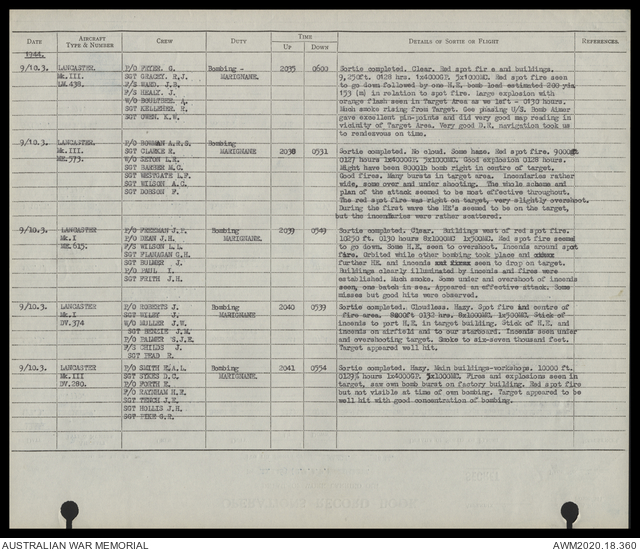 DATE AIRCRAFT TYPE & NUMBER CREW DUTY TIME UP DOWN DETAILS OF SORTIE OR FLIGHT REFERENCES.
1944.
9/10.3. LANCASTER. Mk.III. LM.438. Bombing - MARIGNANE. 2035 0600
P/O FEYER. G.
SGT GRACEY. R.J.
F/S WARD. J.B.
F/S HEALY. J.
W/O BOULTBEE. A.
SGT KELLEHER. R.
SGT OWEN. K.W.
Sortie completed. Clear. Red spot fir e and buildings.
9,250ft. 0128 hrs. 1x4000GP. 5x1000MC. Red spot fire seen
to go down followed by one H.E. bomb load estimated 200 yds
153 (m) in relation to spot fire. large explosion with
orange flash seen in Target Area as we left - 0130 hours.
Much smoke rising from Target. Gee phasing U/S. Bomb Aimer
gave excellent pin-points and did very good map reading in
vicinity of Target Area. Very good D.R. navigation took us
to rendezvous on time.
9/10.3. LANCASTER. Mk.III. ME.573. Bombing MARIGNANE 2038 0531
P/O HORMAN A.R.S.
SGT CLARKE R.
W/O SETON L.R.
SGT BARKER M.C.
SGT WESTGATE L.F.
SGT WILSON A.C.
SGT DOBSON F.
Sortie completed. No cloud. Some haze. Red spot fire. 9000ft
0127 hours 1x4000GP. 5x1000MC. Good explosion 0128 hours.
Might have been 8000lb bomb right in centre of target.
Good fires. Many bursts in target area. Incendiaries rather
wide, some over and under shooting. The whole scheme and
plan of the attack seemed to be most effective throughout.
The red spot fire was right on target, very slightly overshoot.
During the first wave the HE's seemed to be on the target,
but the incendiaries were rather scattered.
9/10.3. LANCASTER Mk.I ME.615. Bombing MARIGNANE. 2039 0549
P/O FREEMAN J.P.
F/O DEAN J.H.
F/S WILSON L.L.
SGT FLANAGAN C.H.
SGT HOLDER J.
P/O PAUL I.
SGT FRITH J.H.
Sortie completed. Clear. Buildings west of red spot fire.
10250 ft. 0130 hours 8x1000MC 1x500MC. Red spot fire seemed
to go down. Some H.E. seen to overshoot. Incends around spot
fire. Orbited while other bombing took place and
further HE. and incends seen to drop on target.
Buildings clearly illuminated by incends and fires were
established. Much smoke. Some under and overshoot of incends
seen, one batch in sea. Appeared an effective attack. Some
misses but good hits were observed.
9/10.3. LANCASTER Mk.I DV.374 Bombing MARIGNANE 2040 0539
P/O ROBERTS J.
SGT BILBY J.
W/O MOLLER J.W.
SGT MENZIE J.M.
P/O PALMER S.J.E.
F/S CHILDS J.
SGT READ R.
Sortie completed. Cloudless. Hazy. Spot fire and centre of
fire area. 8800ft 0132 hrs. 8x1000MC 1x500MC. Stick of
incends to port H.E. in target building. Stick of H.E. and
incends on airfield and to our starboard. Incends seen under
and overshooting target. Smoke to six-seven thousand feet.
Target appeared well hit.
9/10.3. LANCASTER Mk.III DV.280. Bombing MARIGNANE. 2041 0554
P/O SMITH H.A.L.
SGT SYKES D.C.
F/O FORTH E.
F/O RAYNHAM H.R.
SGT TENCH J.E.
SGT HOLLIS J.H.
SGT PIKE G.R.
Sortie completed. Hazy. Main buildings-workshops. 10000 ft.
0139½ hours 1x4000GP. 5x1000MC. Fires and explosions seen in
target, saw own bomb burst on factory building. Red spot fire
but not visible at time of own bombing. Target appeared to be
well hit with good concentration of bombing.
AUSTRALIAN WAR MEMORIAL AWM2020.18.360